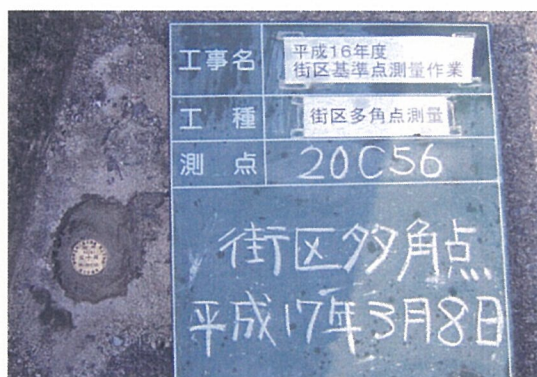 工事名
平成16年度
街区基準点測量作業
工種
街区多角点測量
測点
20C56
街区多角点
平成17年3月8日